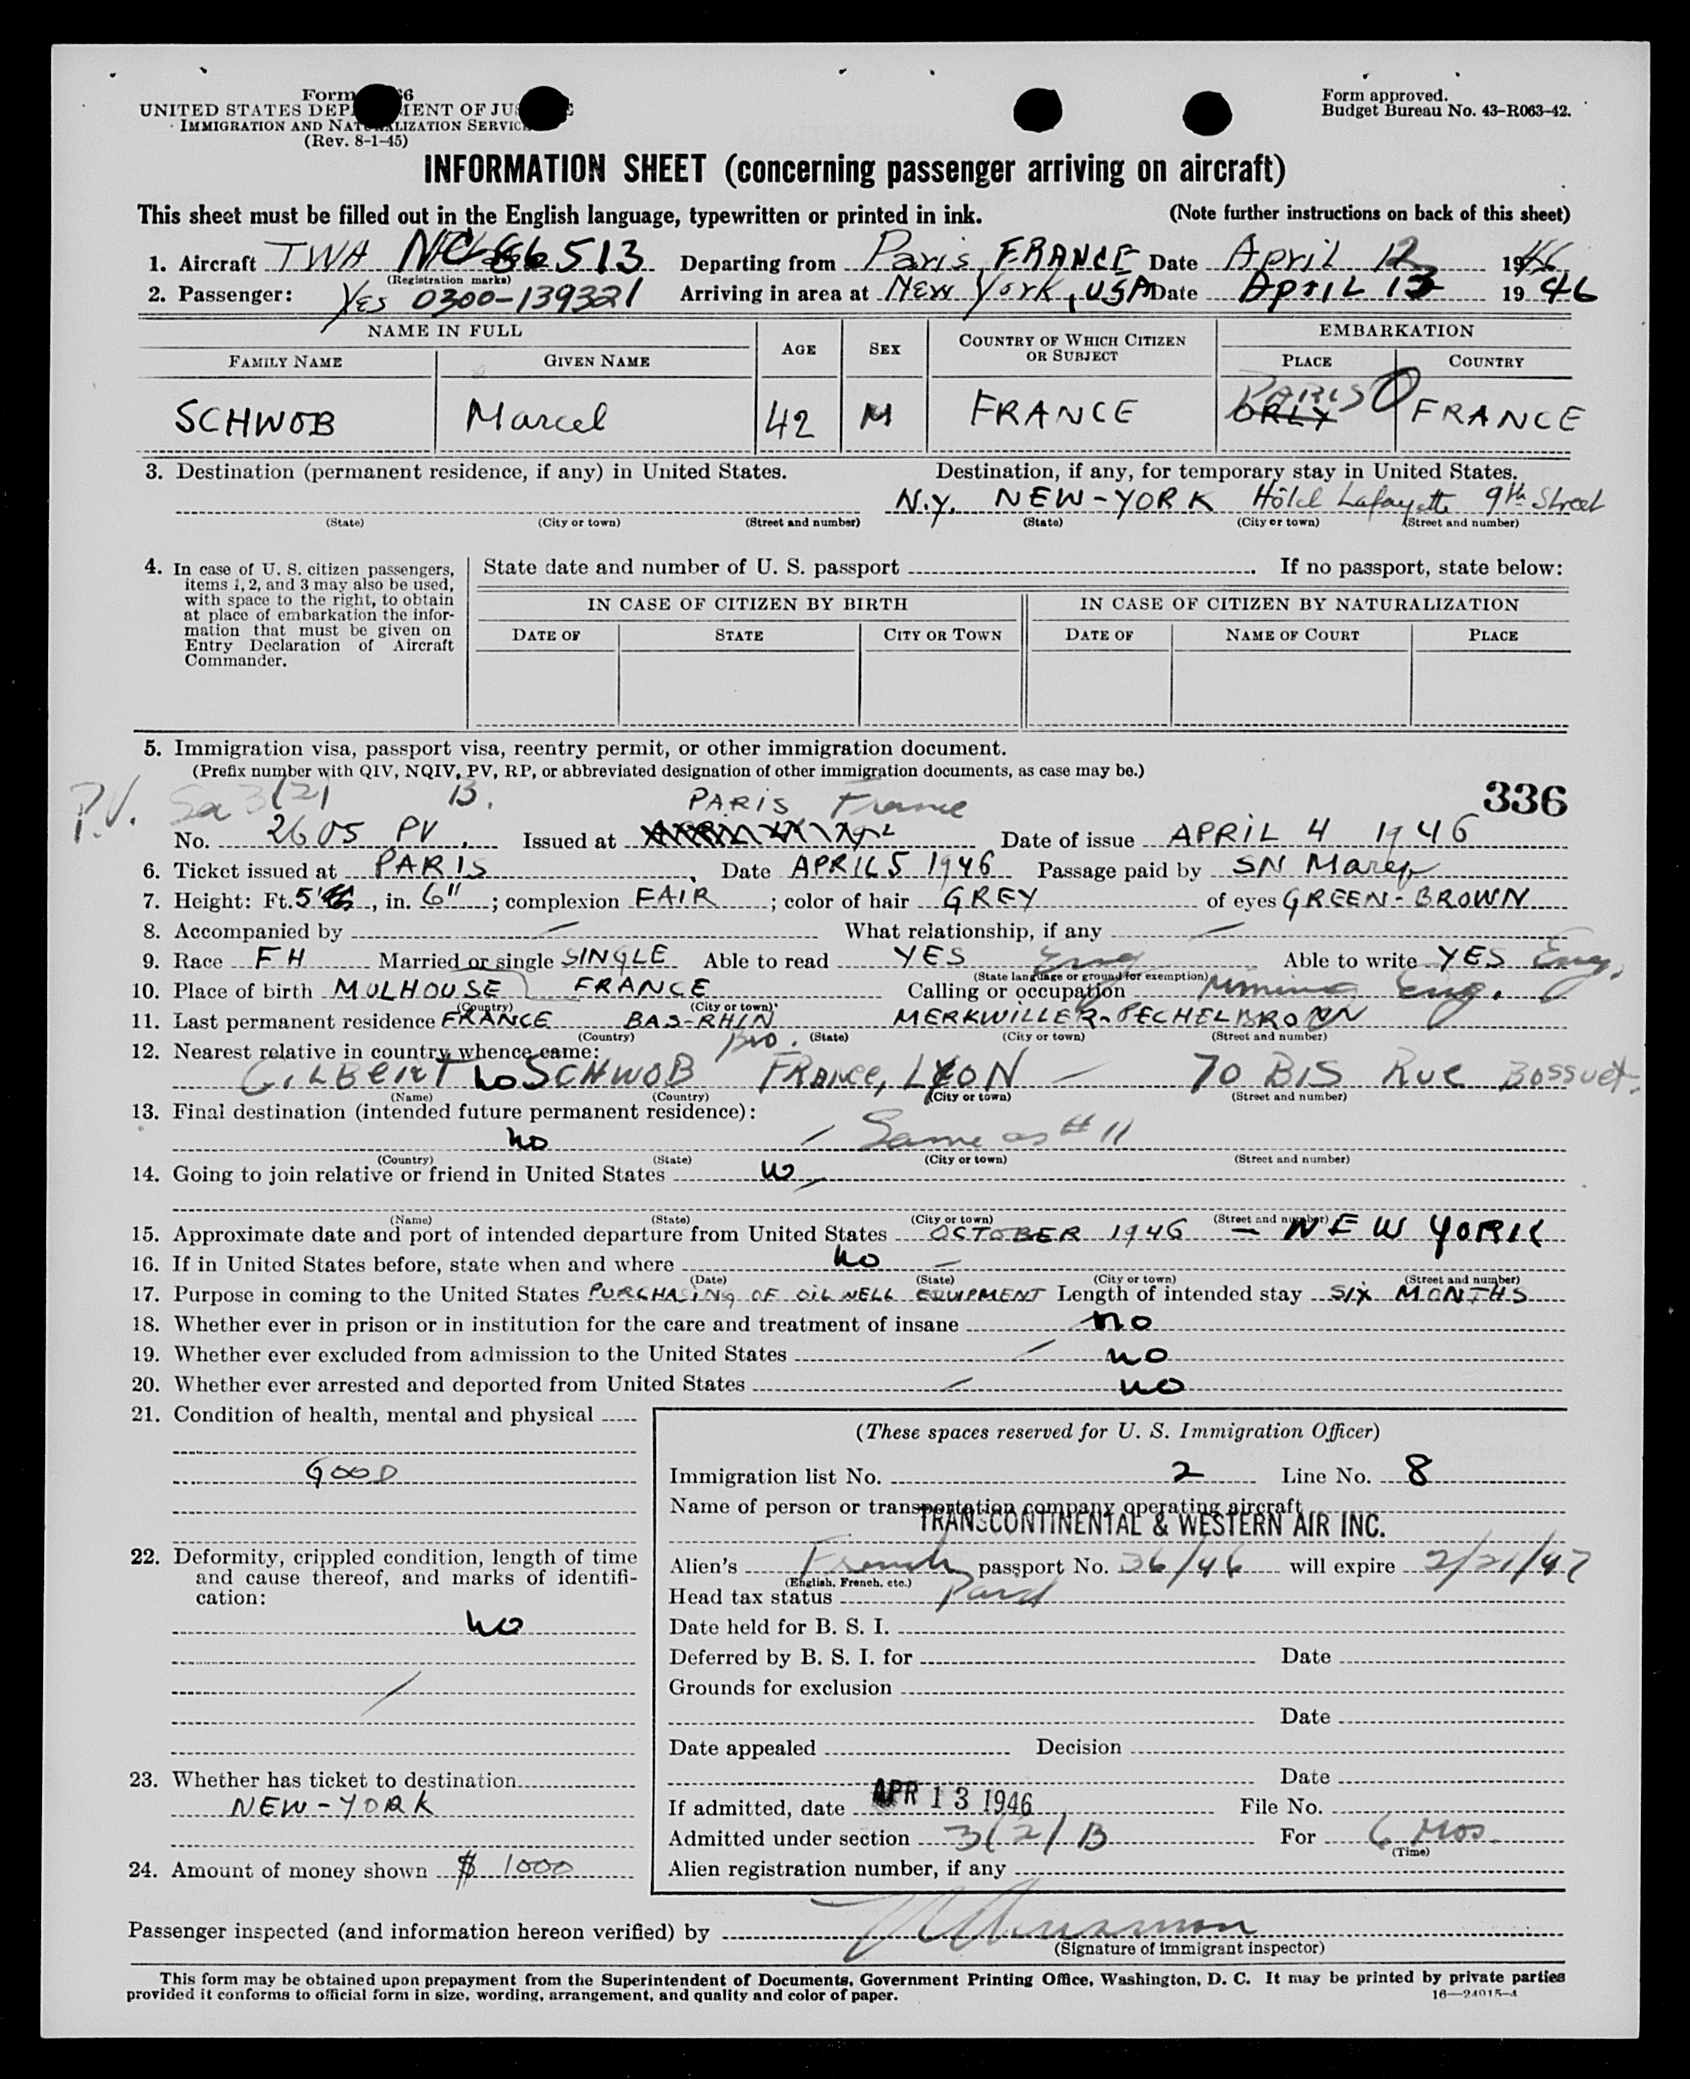 Form 66
UNITED STATES DEP MENT OF JUS E
IMMIGRATION AND NATURALIZATION SERVIC
(Rev. 8-1-45)
Form approved.
Budget Bureau No. 43-R063-42.
INFORMATION SHEET (concerning passenger arriving on aircraft)
This sheet must be filled out in the English language, typewritten or printed in ink. (Note further instructions on back of this sheet)
1. Aircraft TWA NC 86513 Departing from Paris, FRANCE Date April 12 1946
(Registration marks)
2. Passenger: Yes 0300-139321 Arriving in area at New York, USA Date April 13 1946
NAME IN FULL AGE SEX COUNTRY OF WHICH CITIZEN OR SUBJECT EMBARKATION
FAMILY NAME GIVEN NAME PLACE COUNTRY
PARIS
SCHWOB Marcel 42 M FRANCE ORLY FRANCE
3. Destination (permanent residence, if any) in United States. Destination, if any, for temporary stay in United States.
N.Y. NEW-YORK Hôtel Lafayette 9th Street
(State) (City or town) (Street and number) (State) (City or town) (Street and number)
4. In case of U. S. citizen passengers, items 1, 2, and 3 may also be used, with space to the right, to obtain at place of embarkation the information that must be given on Entry Declaration of Aircraft Commander.
State date and number of U. S. passport . If no passport, state below:
IN CASE OF CITIZEN BY BIRTH IN CASE OF CITIZEN BY NATURALIZATION
DATE OF STATE CITY OR TOWN DATE OF NAME OF COURT PLACE
5. Immigration visa, passport visa, reentry permit, or other immigration document.
(Prefix number with QIV, NQIV, PV, RP, or abbreviated designation of other immigration documents, as case may be.)
336
P.V. 3(2) B. PARIS France
No. 2605 PV Issued at Date of issue APRIL 4 1946
6. Ticket issued at PARIS, Date APRIL 5 1946 Passage paid by SN Marep
7. Height: Ft. 5', in. 6"; complexion FAIR; color of hair GREY of eyes GREEN-BROWN
8. Accompanied by — What relationship, if any —
9. Race FH Married or single SINGLE Able to read YES Eng Able to write YES Eng.
(State language or ground for exemption)
10. Place of birth MULHOUSE FRANCE Calling or occupation Mining Eng.
(Country) (City or town)
11. Last permanent residence FRANCE BAS-RHIN MERKWILLER-PECHELBRONN
(Country) (State) (City or town) (Street and number)
12. Nearest relative in country whence came: Bro.
GILBERT SCHWOB FRANCE, LYON — 70 BIS Rue Bossuet.
(Name) (Country) (City or town) (Street and number)
13. Final destination (intended future permanent residence):
no / Same as #11
(Country) (State) (City or town) (Street and number)
14. Going to join relative or friend in United States no
(Name) (State) (City or town) (Street and number)
15. Approximate date and port of intended departure from United States OCTOBER 1946 — NEW YORK
16. If in United States before, state when and where no —
(Date) (State) (City or town) (Street and number)
17. Purpose in coming to the United States PURCHASING OF OIL WELL EQUIPMENT Length of intended stay SIX MONTHS
18. Whether ever in prison or in institution for the care and treatment of insane no
19. Whether ever excluded from admission to the United States no
20. Whether ever arrested and deported from United States no
21. Condition of health, mental and physical
GOOD
22. Deformity, crippled condition, length of time and cause thereof, and marks of identification:
no
23. Whether has ticket to destination
NEW-YORK
24. Amount of money shown $ 1000
(These spaces reserved for U. S. Immigration Officer)
Immigration list No. 2 Line No. 8
Name of person or transportation company operating aircraft
TRANSCONTINENTAL & WESTERN AIR INC.
Alien's French passport No. 36/46 will expire 2/21/47
(English, French, etc.)
Head tax status Paid
Date held for B. S. I.
Deferred by B. S. I. for Date
Grounds for exclusion
Date
Date appealed Decision
Date
If admitted, date APR 13 1946 File No.
Admitted under section 3(2)B For 6 Mos.
(Time)
Alien registration number, if any
Passenger inspected (and information hereon verified) by
(Signature of immigrant inspector)
This form may be obtained upon prepayment from the Superintendent of Documents, Government Printing Office, Washington, D. C. It may be printed by private parties
provided it conforms to official form in size, wording, arrangement, and quality and color of paper. 16—24015-4